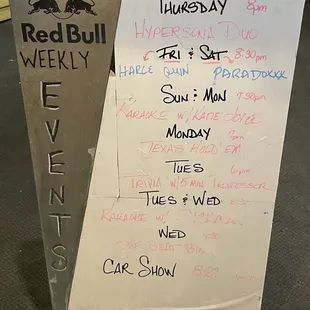 Red Bull
WEEKLY
EVENTS
THURSDAY 8pm
HYPERSONA DUO
FRI & SAT 8:30pm
HARLE QUIN PARADOXXX
SUN & MON 7:30pm
KARAOKE W/KATIE
MONDAY 7pm
TEXAS HOLD' EM
TUES
TRIVIA W/5 MIN PROFESSOR
TUES & WED
KARAOKE W/
WED
CAR SHOW